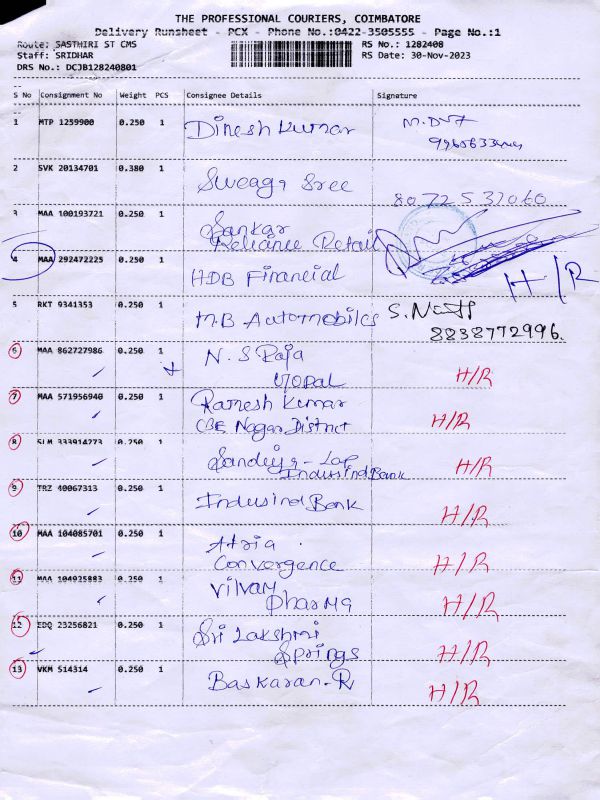 THE PROFESSIONAL COURIERS, COIMBATORE
Delivery Runsheet - PCX - Phone No.:0422-3505555 - Page No.:1
Route: SASTHIRI ST CMS RS No.: 1282408
Staff: SRIDHAR RS Date: 30-Nov-2023
DRS No.: DCJB128240801
S No Consignment No Weight PCS Consignee Details Signature
1 MTP 1259900 0.250 1 Dinesh Kumar
2 SVK 20134701 0.380 1 Sree
8072537060
3 MAA 100193721 0.250 1 Sankar
Reliance Retail
4 MAA 292472225 0.250 1 HDB Financial H/R
5 RKT 9341353 0.250 1 MB Automobiles S.
8838772996.
6 MAA 862727986 0.250 1 N. S Raja
Gopal H/R
7 MAA 571956940 0.250 1 Ramesh Kumar
CBE Nagar District H/R
8 SLM 333914273 0.250 1
IndusindBank H/R
9 TRZ 40067313 0.250 1 Indusind Bank H/R
10 MAA 104085701 0.250 1 Atria
Convergence H/R
11 MAA 104925883 0.250 1 Vilvam
Pharma H/R
12 EDQ 23256821 0.250 1 Sri Lakshmi
Springs H/R
13 VKM 514314 0.250 1 Baskaran-R H/R